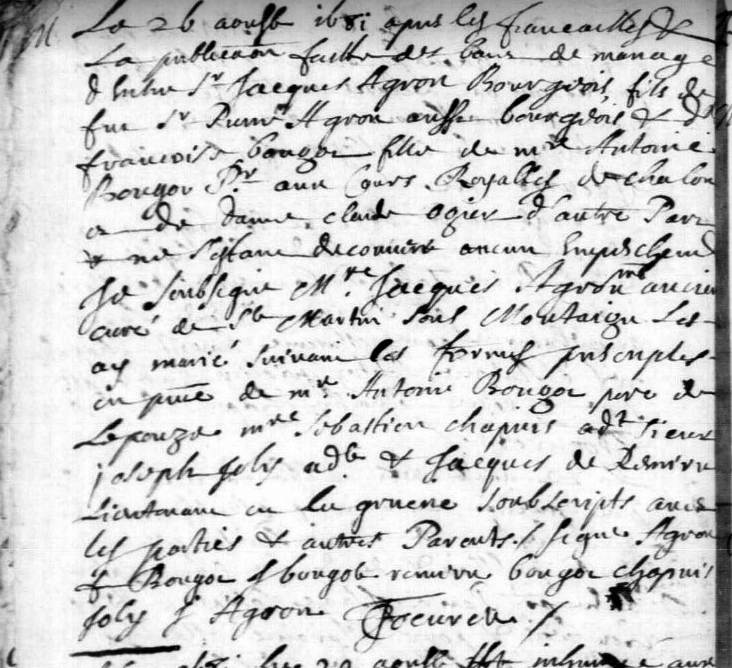 Le 26 aoust 1681 apres les fiancailles &
La publicaon faitte des bans de mariage
d'Entre Sr Jacques Agron Bourgeois, fils de
feu Sr Pierre Agron aussi bourgeois & de
francoise bougot fille de mre Antoine
Bougot Pr. aux Cours Royalles de chalon
et de dame claude ogier d'autre Part
& ne s'estant decouvert aucun Empeschemt
Je soubsigné Mre. Jacques Agron ancien
curé de St Martin sous Montaigu Les
ay marié suivant les formes prescriptes
en pnce de mre Antoine Bougot pere de
Lepouze mre Sebastien chapuis adt sieur
joseph joly adt & Jacques de
Lieutenant en la gruerie soubscripts avec
les parties & autres Parents / signé Agron
f Bougot bougot bougot chapuis
joly J Agron
aoust